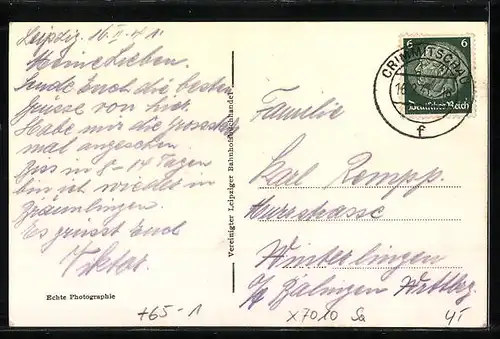 Leipzig. 16.II.41.
Meine Lieben.
Sende Euch die besten
Grüsse von hier.
Habe mir die Grosstadt
mal angesehen.
Bis in 8-14 Tagen
bin ich wieder in
Es grüsst Euch
Viktor.
Echte Photographie
Vereinigter Leipziger Bahnhofsbuchhandel
6 6
Deutsches Reich
CRIMMITSCHAU
16
f
Familie
Karl Rempp.
Winterlingen
Balingen Wttbg.
+65-1
X7010 Sa